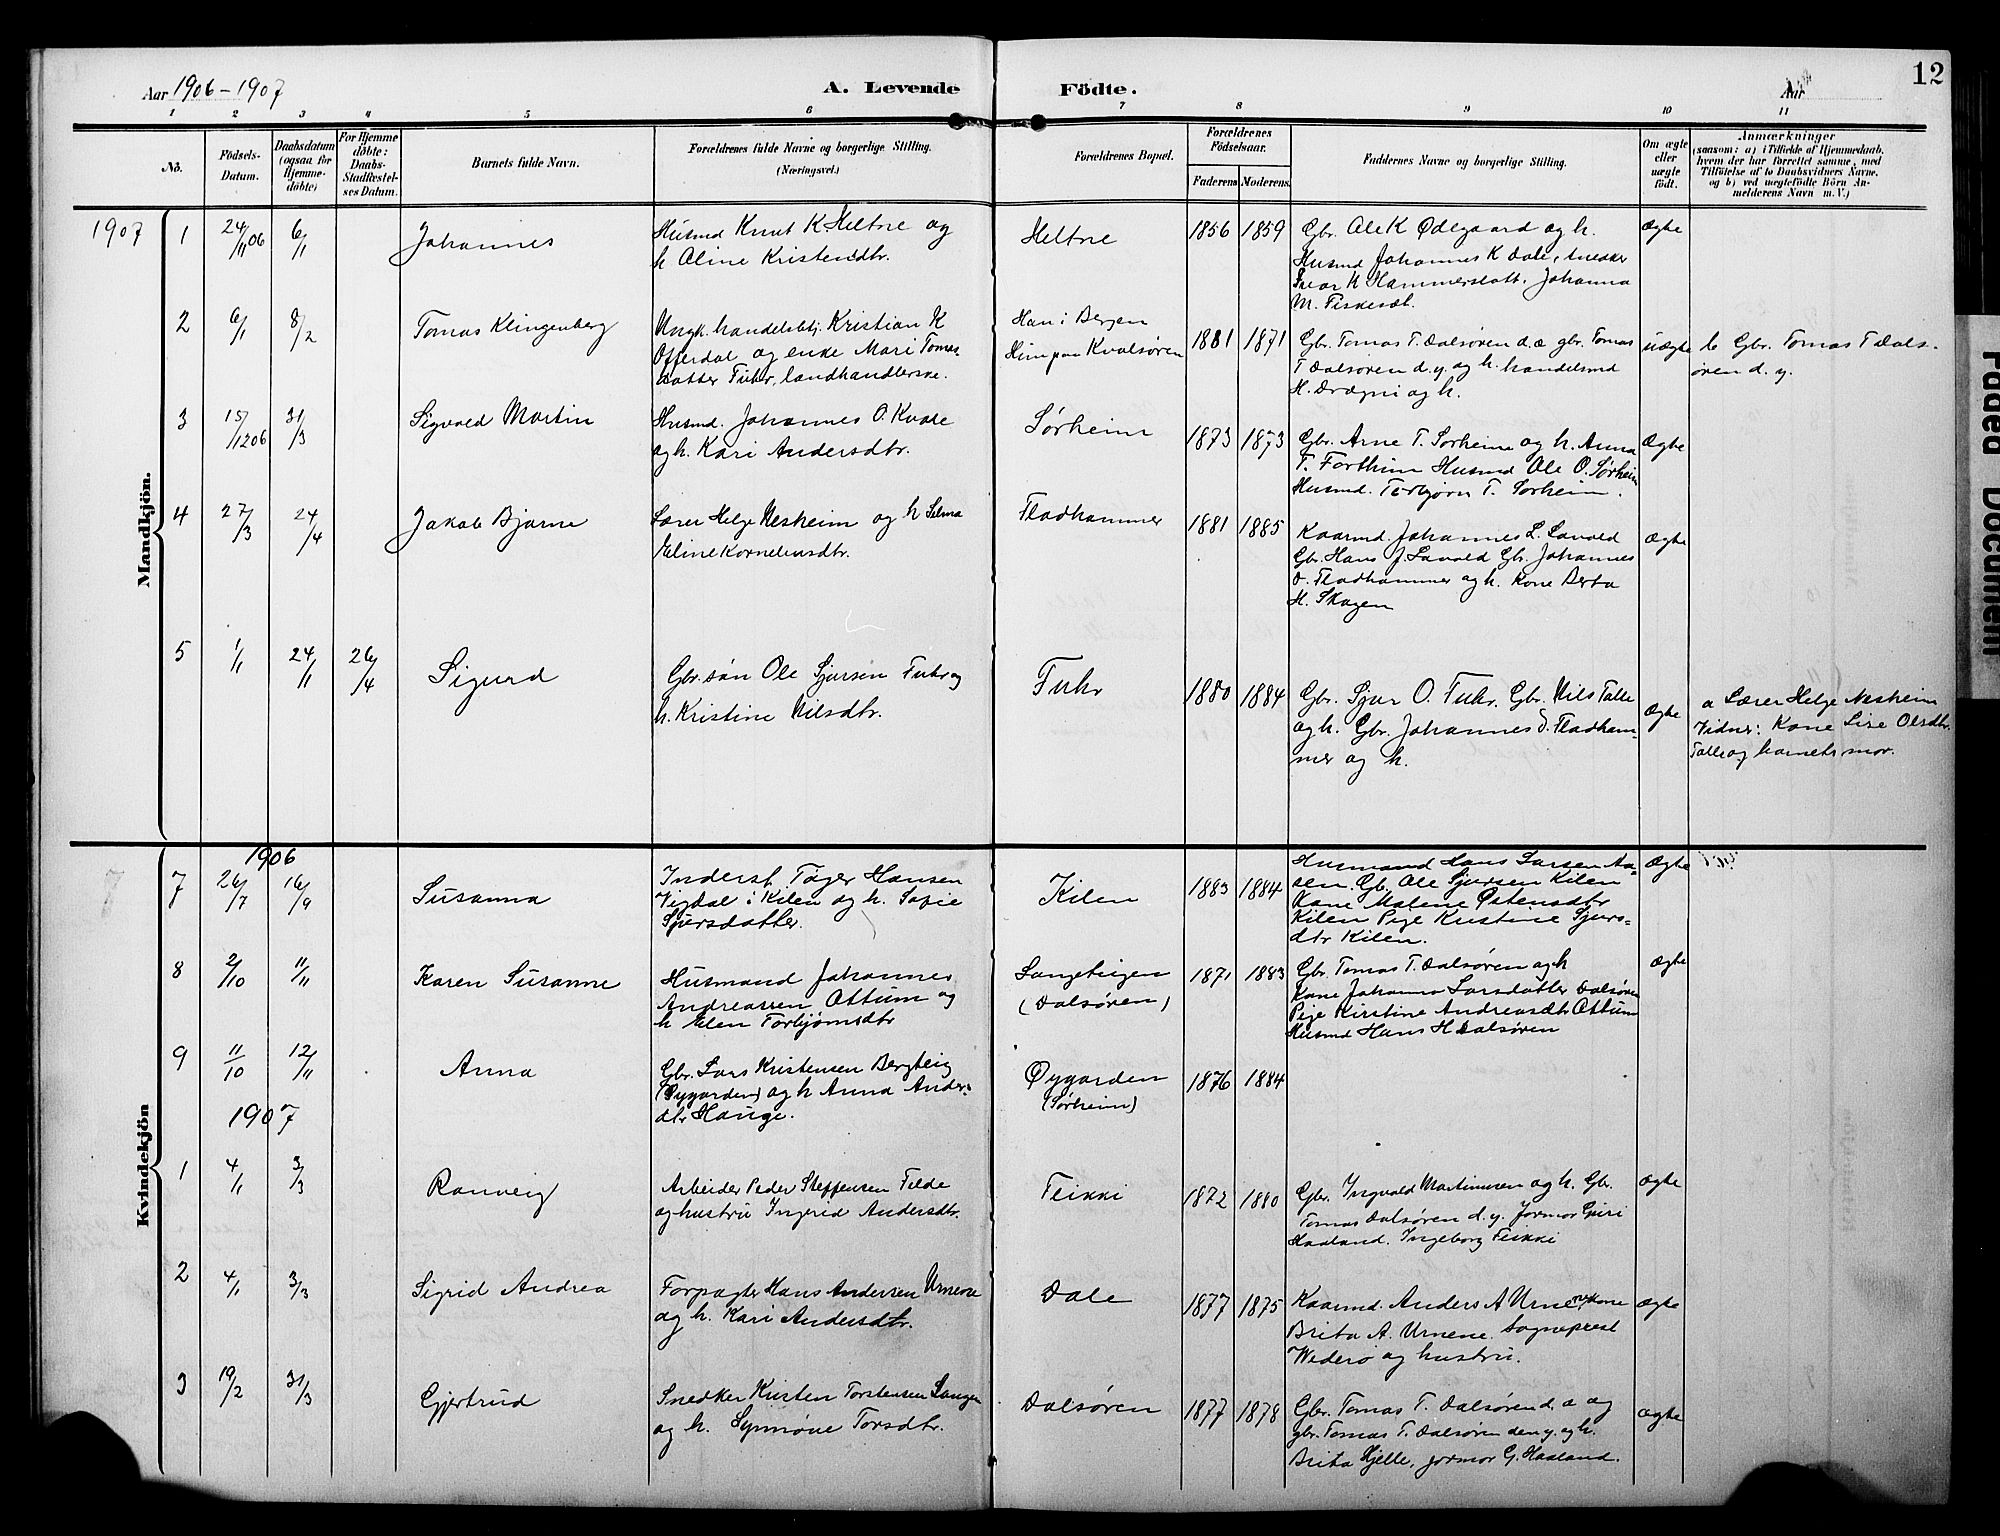 Aar 1906-1907
A. Levende Födte.
Aar
12
1 2 3 4 5 6 7 8 9 10 11
No.
Födsels-Datum.
Daabsdatum (ogsaa for Hjemmedöbte)
For Hjemmedöbte: Daabs-Stadfæstelses Datum.
Barnets fulde Navn.
Forældrenes fulde Navne og borgerlige Stilling. (Næringsvei.)
Forældrenes Bopæl.
Forældrenes Födselsaar.
Faderens Moderens
Faddernes Navne og borgerlige Stilling.
Om ægte eller uægte födt.
Anmærkninger
(saasom: a) i Tilfælde af Hjemmedaab, hvem der har forrettet samme, med Tilföielse af to Daabsvidners Navne, og b) ved uægtefödte Börn Anmelderens Navn m. V.)
Mandkjön.
1907
1 24/11 06 6/1 Johannes
Husmd Knut K Heltne og
h Oline Kristensdtr.
Heltne 1856 1859
Gbr. Ole K Ødegaard og h.
Husmd Johannes K Dale, snekker
Ivar K Hammerslott. Johanna
M. Fiskesæt.
Ægte
2 6/1 8/2 Tomas Klingenberg
Ungk. handelsbtj. Kristian K
Offerdal og enke Mari Tomas-
datter Fuhr, landhandlerske.
Han i Bergen
Hun paa Kvalsøren
1881 1871
Gbr. Tomas T. Dalsøren d.æ gbr. Tomas
T Dalsøren d.y. og h. handelsmd
H. Drægni og h.
uægte
b Gbr. Tomas T Dals-
øren d. y.
3 15/12 06 31/3 Sigvald Martin
Husmd. Johannes O. Kvale
og h. Kari Andersdtr.
Sørheim 1873 1873
Gbr. Arne T. Sørheim og h. Anna
T. Forthun Husmd Ole O. Sørheim
Husmd. Torbjørn T. Sørheim.
Ægte
4 27/3 24/4 Jakob Bjarne
Lærer Helge Nesheim og h Selma
Eline Korneliusdtr.
Fladhammer 1881 1885
Kaarmd. Johannes L. Lavold
Gbr. Hans J. Lavold Gbr. Johannes
O. Fladhammer og h. Kone Berta
H. Skagen
Ægte
5 1/1 24/11 26/4 Sigurd
Gbr.søn Ole Sjursen Fuhr og
h. Kristine Nilsdtr.
Fuhr 1880 1884
Gbr. Sjur O. Fuhr. Gbr. Nils Talle
og h. Gbr. Johannes O. Fladham-
mer og h.
Ægte
a Lærer Helge Nesheim
Vidner: Kone Lise Olsdtr.
Talle og barnets mor.
Kvindekjön
1906
7 26/7 16/9 Susanna
Inderst Tøger Hansen
Vigdal i Kilen og h. Sofie
Sjursdatter.
Kilen 1883 1884
Husmand Hans Larsen Aa-
sen. Gb. Ole Sjursen Kilen
Kone Malene Østensdtr
Kilen Pige Kristine Sjurs-
dtr Kilen.
Ægte
8 2/10 11/11 Karen Susanne
Husmand Johannes
Andreassen Ottum og
h Elen Torbjørnsdtr
Langeteigen
(Dalsøren)
1871 1883
Gbr. Tomas T. Dalsøren og h
Kone Johanna Larsdatter Dalsøren
Pige Kirstine Andreasdtr Ottum
Husmd Hans H Dalsøren
Ægte
9 11/10 12/11 Anna
Gbr. Lars Kristensen Bergteig
(Øygarden) og h Anna Anders-
dtr Hauge.
Øygarden
(Sørheim)
1876 1884
1907
1 4/1 3/3 Ranveig
Arbeider Peder Steffensen Felde
og hustru Ingerid Andersdtr.
Feikki 1872 1880
Gbr. Ingvald Martinusen og h. Gbr.
Tomas Dalsøren d. y. Jormor Guri
Haaland. Ingeborg Feikki
ægte
2 4/1 3/3 Sigrid Andrea
Forpagter Hans Andersen Urnene
og h. Kari Andersdtr.
Dale 1877 1875
Kaarmd. Anders A Urnene kone
Brita A. Urnene. Sogneprest
Wederø og hustru.
ægte
3 19/2 31/3 Gjertrud
Snedker Kristen Torstensen Langen
og h. Synnøve Torsdtr.
Dalsøren 1877 1878
Gbr. Tomas T. Dalsøren d. æ og
gbr. Tomas T. Dalsøren den y. og h.
Brita Hjelle, jormor G. Haaland.
ægte
Faded Document